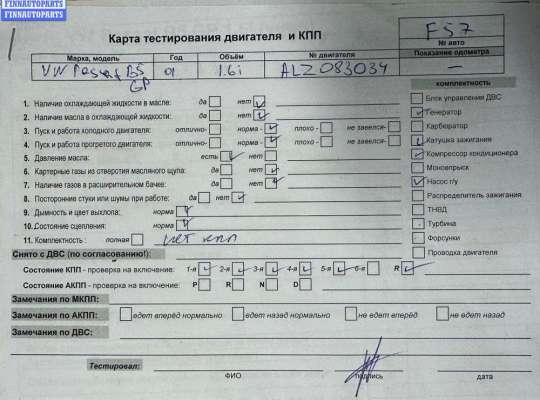 FINNAUTOPARTS
FINNAUTOPARTS
Карта тестирования двигателя и КПП
F57
№ авто
Марка, модель Год Объём № двигателя Показание одометра
VW Passat B5 GP 01 1.6i ALZ 083034 —
комплектность
1. Наличие охлаждающей жидкости в масле: да нет
2. Наличие масла в охлаждающей жидкости: да нет
3. Пуск и работа холодного двигателя: отлично- норма - плохо - не завелся-
4. Пуск и работа прогретого двигателя: отлично- норма - плохо - не завелся-
5. Давление масла: есть нет
6. Картерные газы из отверстия масляного щупа: да нет
7. Наличие газов в расширительном бачке: да нет
8. Посторонние стуки или шумы при работе: да нет
9. Дымность и цвет выхлопа: норма
10. Состояние сцепления: норма
11. Комплектность : полная нет кпп
Блок управления ДВС
Генератор
Карбюратор
Катушка зажигания
Компрессор кондиционера
Моновпрыск
Насос г/у
Распределитель зажигания
ТНВД
Турбина
Форсунки
Проводка двигателя
Снято с ДВС (по согласованию!):
Состояние КПП - проверка на включение: 1-я 2-я 3-я 4-я 5-я 6-я R
Состояние АКПП - проверка на включение: P R N D
Замечания по МКПП:
Замечания по АКПП: едет вперёд нормально едет назад нормально не едет вперёд не едет назад
Замечания по ДВС:
Тестировал:
ФИО подпись дата